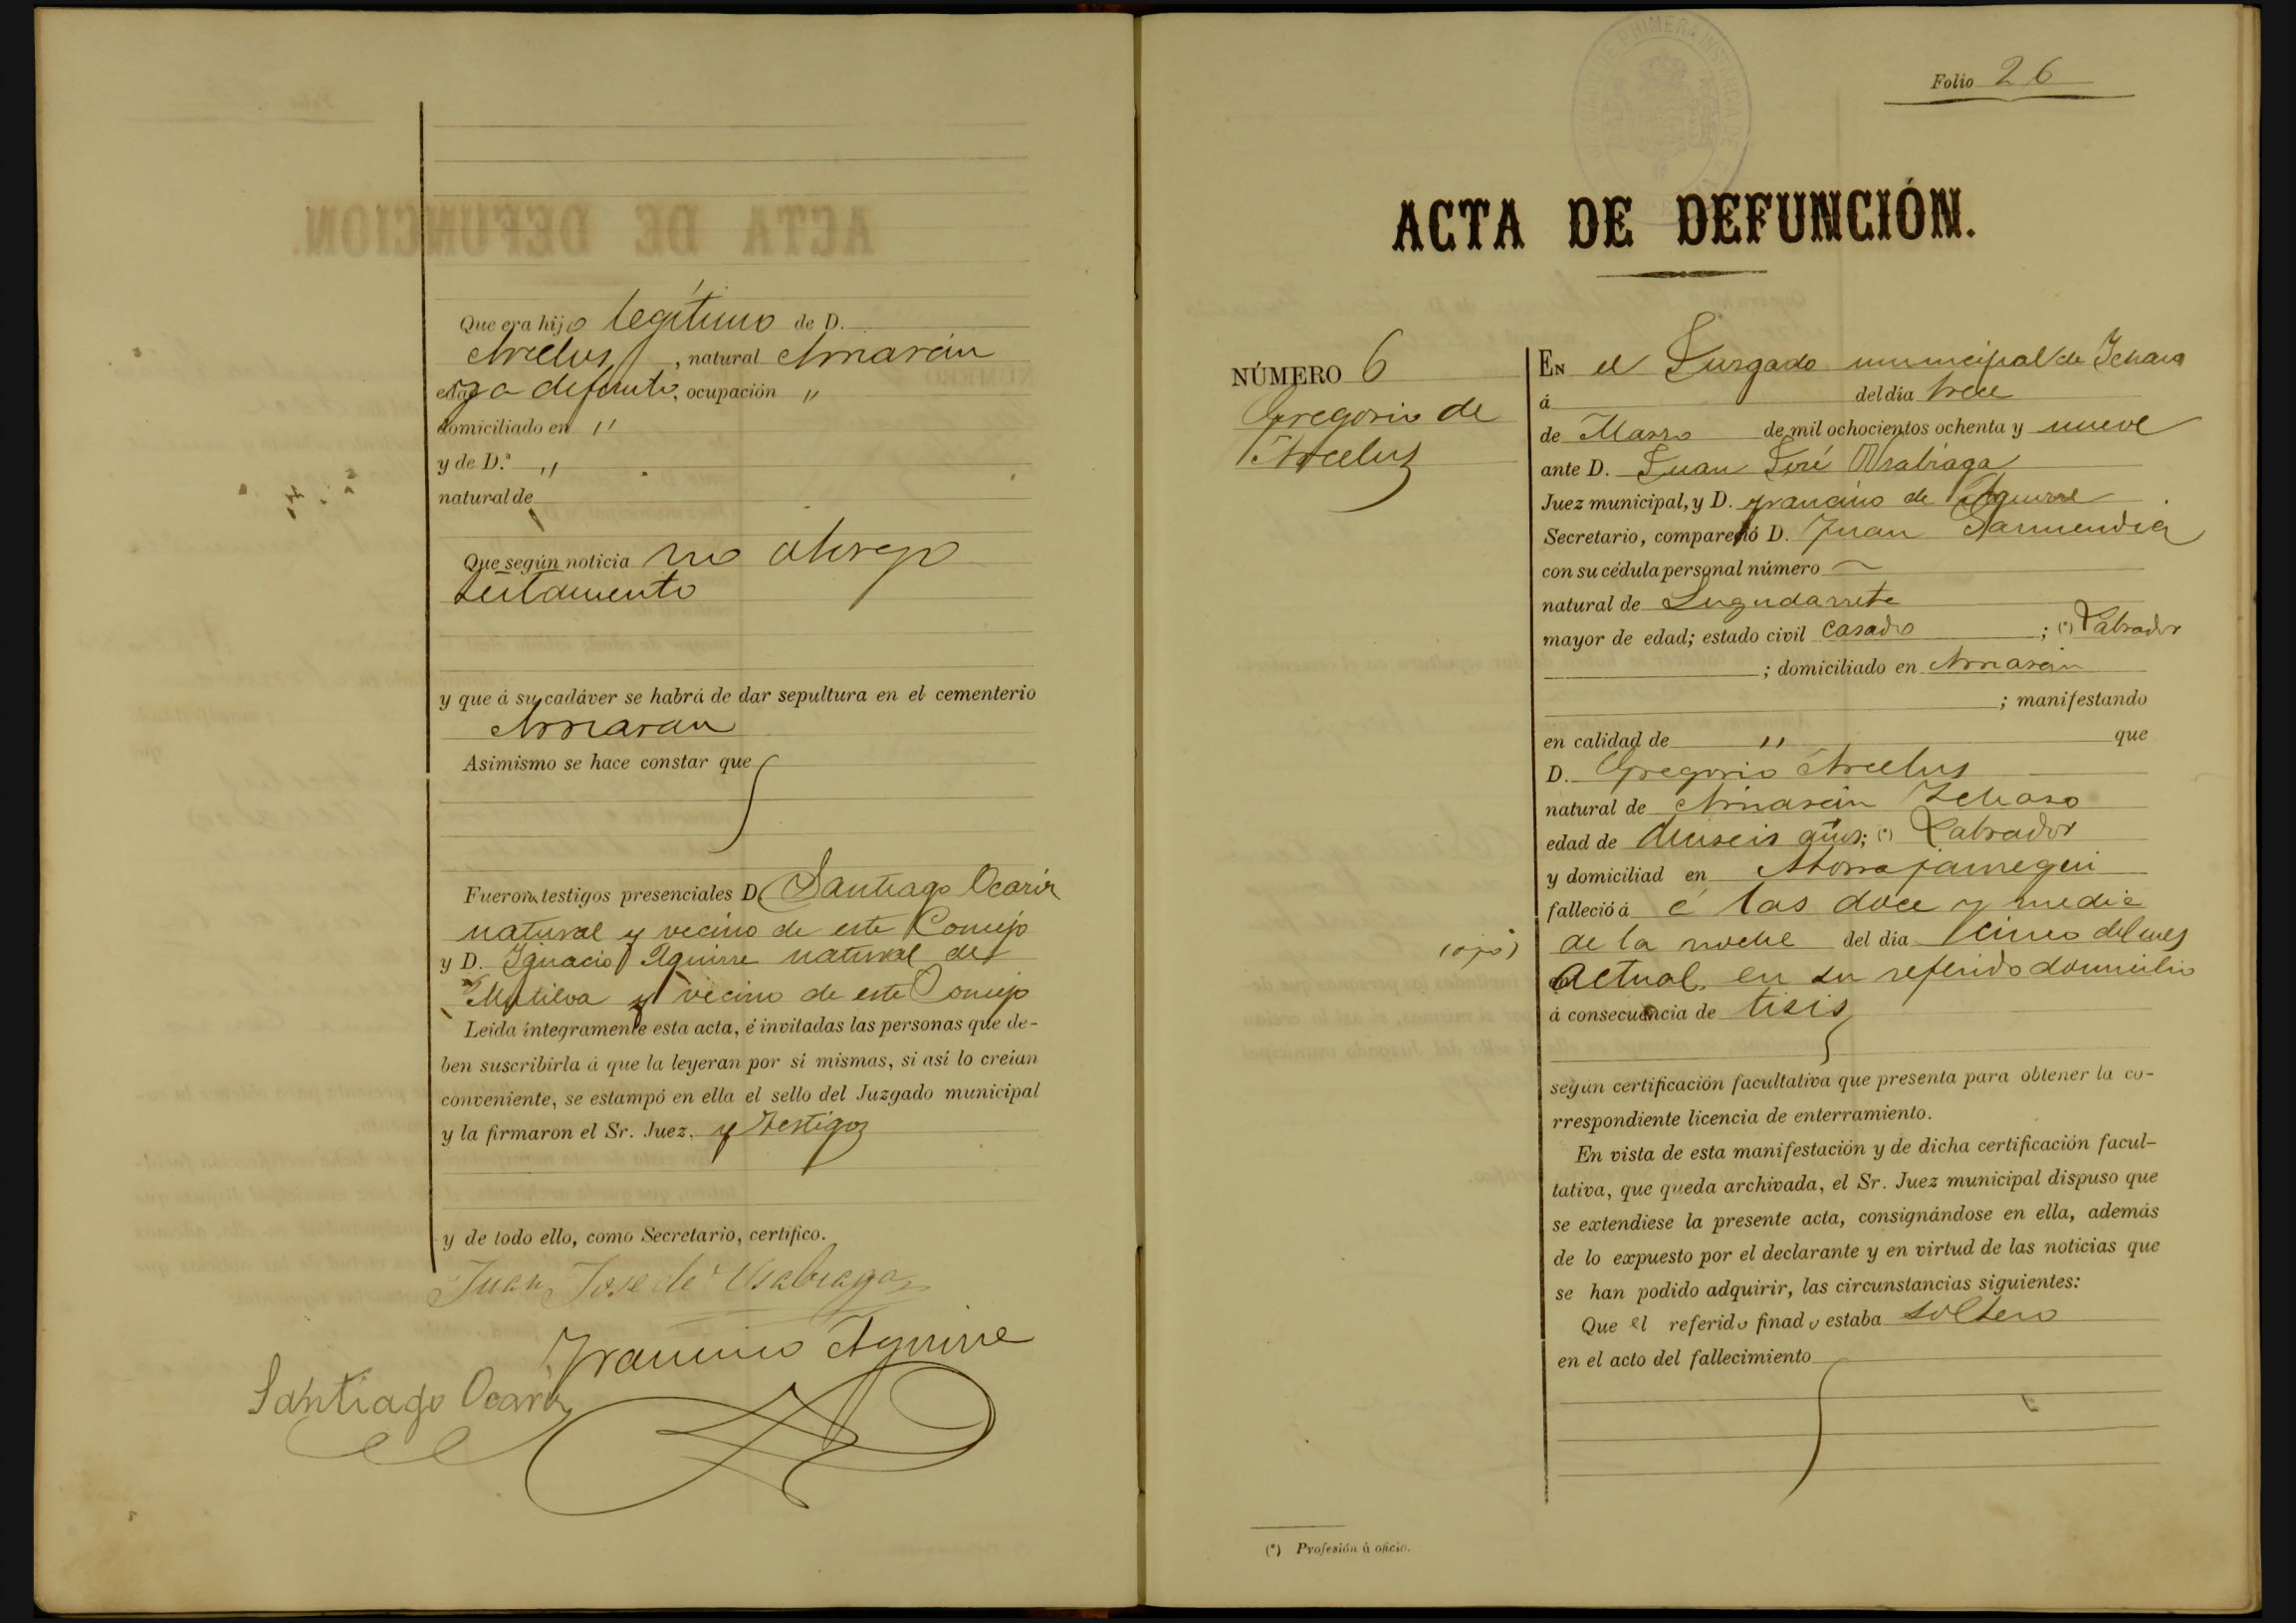 Que era hijo legítimo de D.
Arcelus, natural Arriarán
edad ya difunto, ocupación "
domiciliado en "
y de D.ª "
natural de
Que según noticia no otorgo
testamento
y que á su cadáver se habrá de dar sepultura en el cementerio
Arriaran
Asimismo se hace constar que
Fueron testigos presenciales D. Santiago Ocariz
natural y vecino de este Concejo
y D. Ignacio Aguirre natural de
Mutiloa y vecino de este Concejo
Leída íntegramente esta acta, é invitadas las personas que de-
ben suscribirla á que la leyeran por sí mismas, si así lo creían
conveniente, se estampó en ella el sello del Juzgado municipal
y la firmaron el Sr. Juez, y testigos
y de todo ello, como Secretario, certifico.
Juan José de Usabiaga
Francisco Aguirre
Santiago Ocariz
Folio 26
ACTA DE DEFUNCIÓN.
NÚMERO 6
Gregorio de
Arcelus
EN el Juzgado municipal de Ichaso
á del día trece
de Marzo de mil ochocientos ochenta y nueve
ante D. Juan José Usabiaga
Juez municipal, y D. Francisco de Aguirre
Secretario, compareció D. Juan Garmendia
con su cédula personal número
natural de
mayor de edad; estado civil casado ; (*) Labrador
; domiciliado en Arriarán
; manifestando
en calidad de " que
D. Gregorio Arcelus
natural de Arriarán Ichaso
edad de dieciseis años; (*) Labrador
y domiciliad en
falleció á á las doce y media
(ojo) de la noche del día cinco del mes
actual, en su referido domicilio
á consecuencia de tisis
según certificación facultativa que presenta para obtener la co-
rrespondiente licencia de enterramiento.
En vista de esta manifestación y de dicha certificación facul-
tativa, que queda archivada, el Sr. Juez municipal dispuso que
se extendiese la presente acta, consignándose en ella, además
de lo expuesto por el declarante y en virtud de las noticias que
se han podido adquirir, las circunstancias siguientes:
Que el referido finado estaba soltero
en el acto del fallecimiento
(*) Profesión ú oficio.